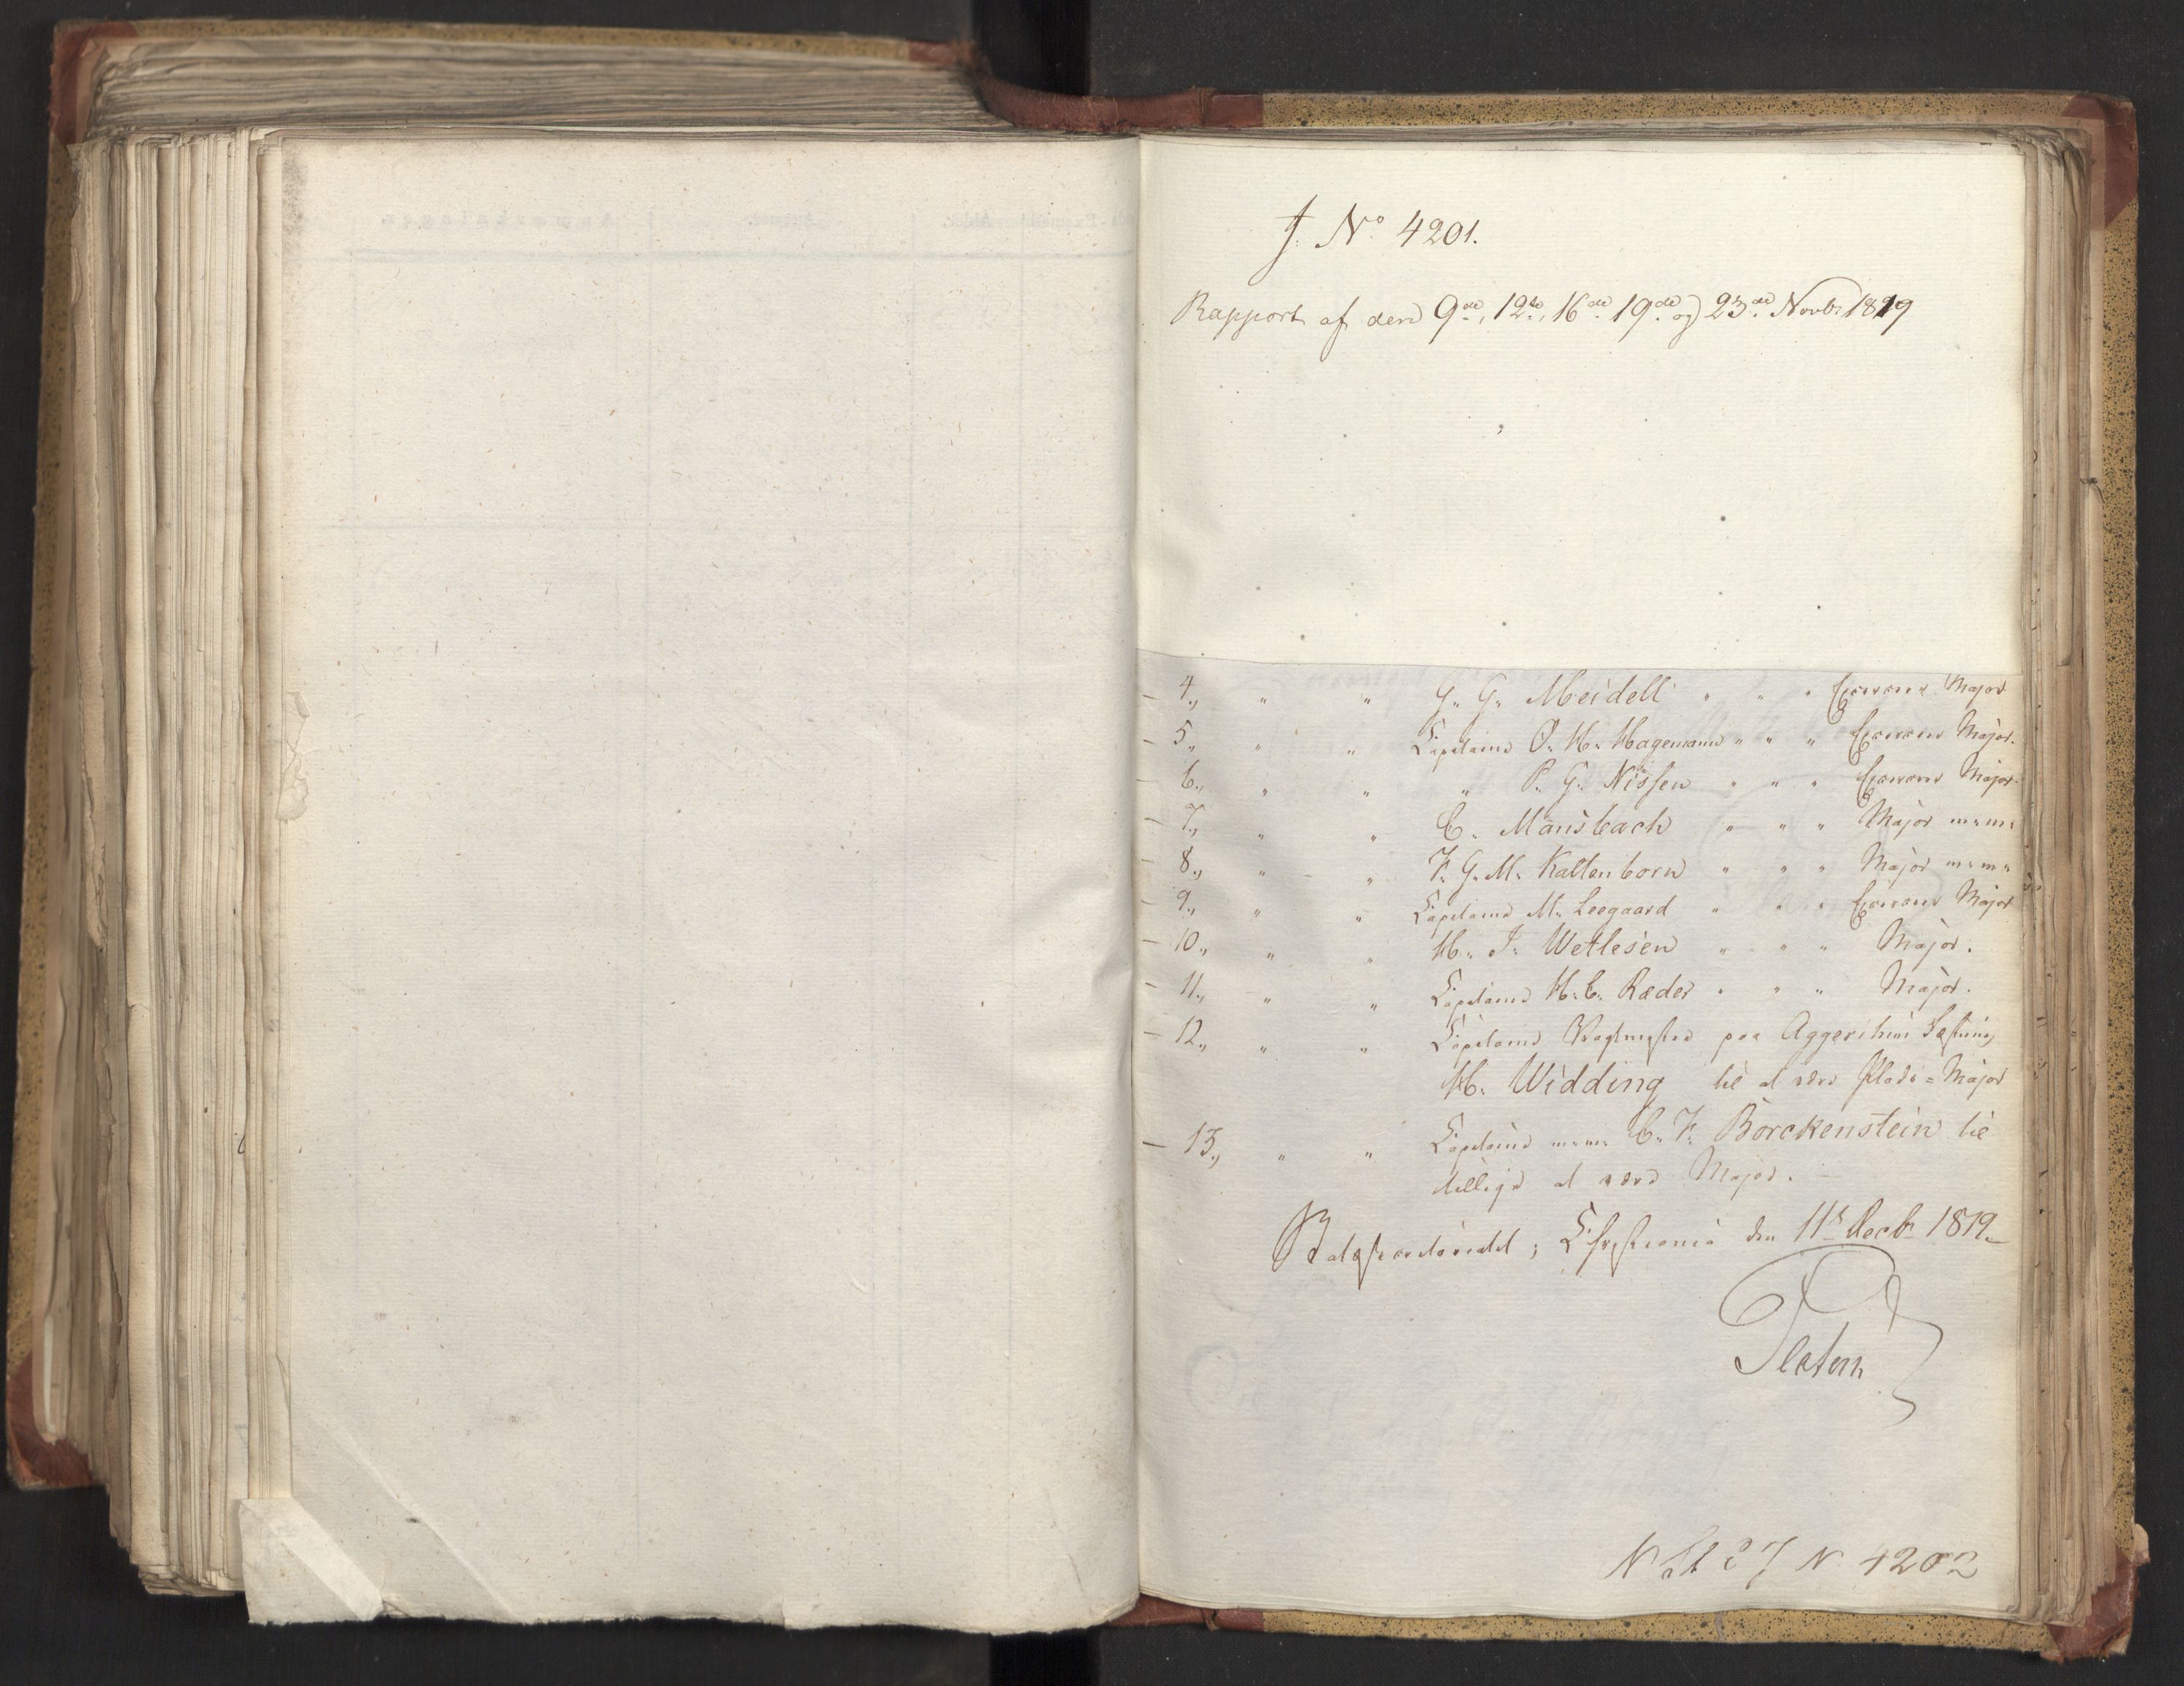 J. No 4201.
Rapport af den 9de, 12te, 16de 19de og 23de Novbr 1819
– 4., " " G. G. Meidell " " " Major
– 5., " " Capitaine O. H. Hagemann " " " Major.
– 6., " " " P. G. Nissen " " " Major.
– 7., " " C. Mansbach " " " Major m: m:
– 8., " " F. G. M. Kaltenborn " " " Major m: m:
– 9., " " Capitaine M. Leegaard " " " Major
– 10., " " H. J. Wetlesen " " " Major.
– 11., " " Capitaine H. C. Ræder " " " Major.
– 12., " " Capitaine Vagtmester paa Aggershuus Fæstning
H. Widding til at være Plads=Major
– 13., " " Capitaine m: m: C. F. Borckenstein til
tillige at være Major. –
Christiania den 11te Decbr 1819.
Platen
N 4202